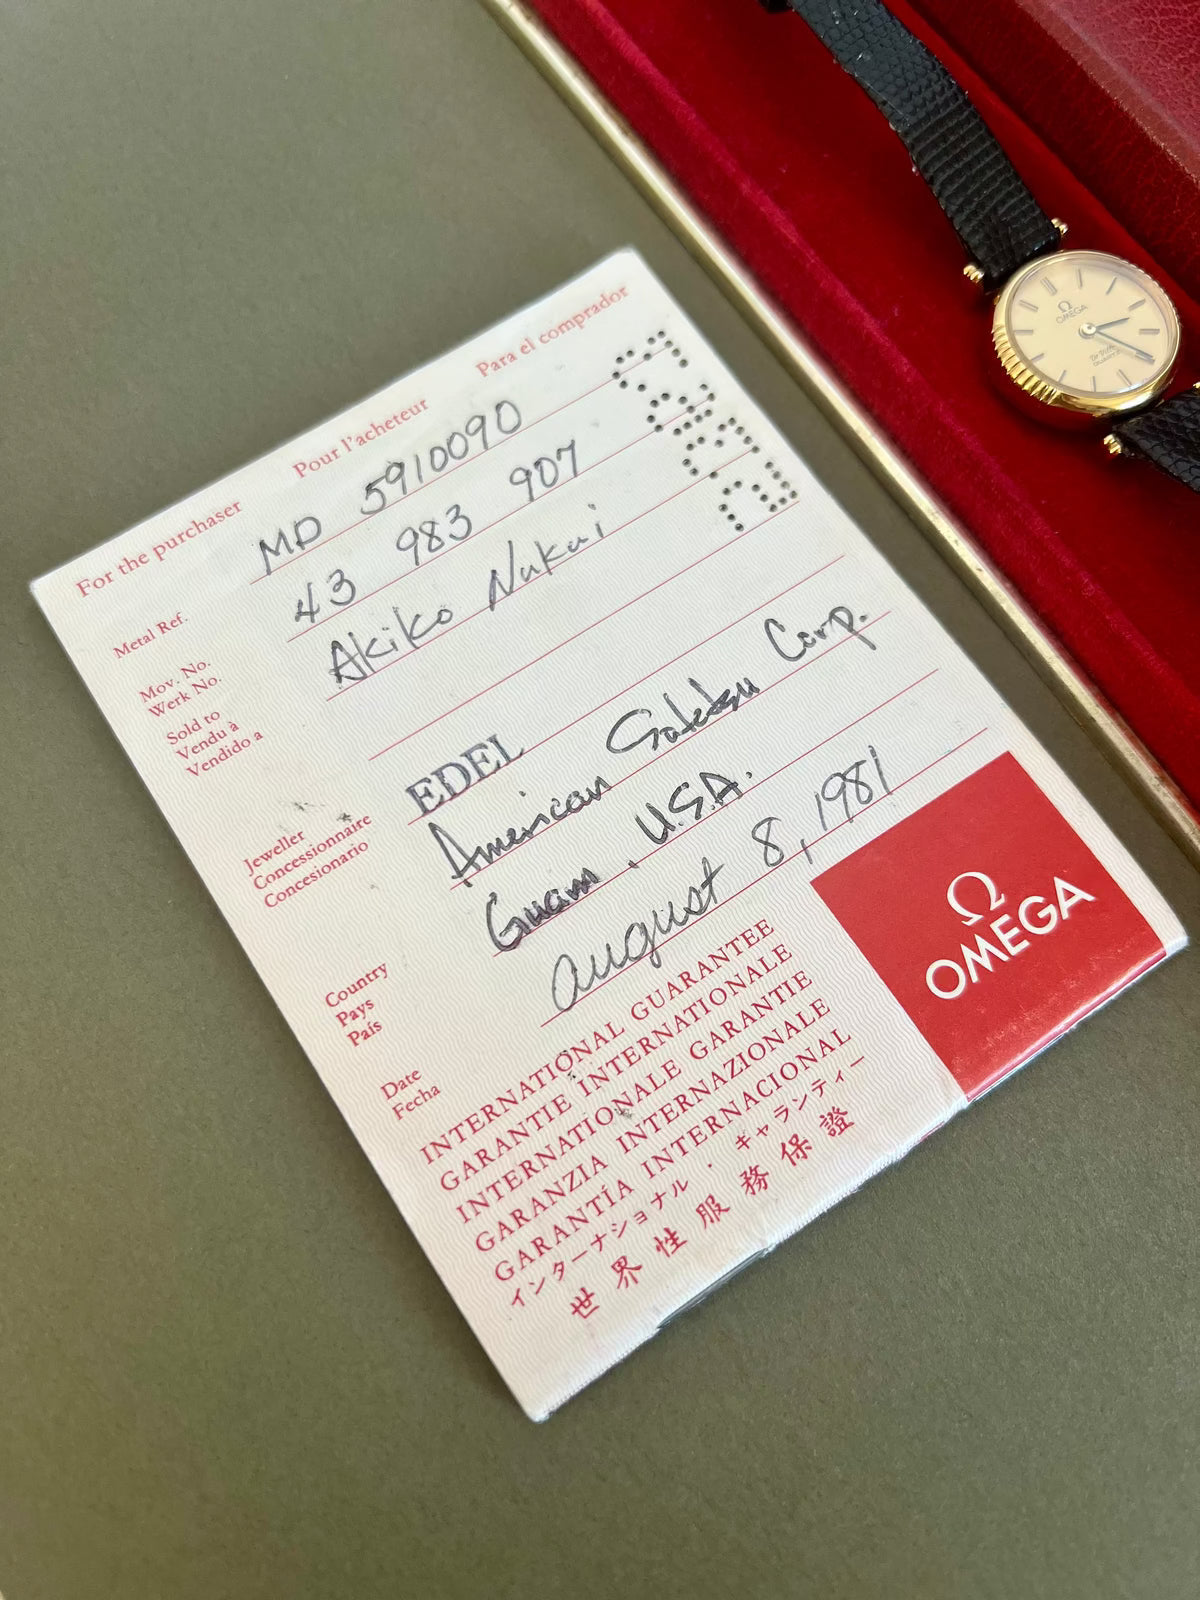 For the purchaser Pour l'acheteur Para el comprador
Metal Ref. MD 5910090
Mov. No. 43 983 907
Werk No.
Sold to Akiko Nukui
Vendu à
Vendido a
Jeweller EDEL
Concessionnaire American Corp.
Concesionario
Country Guam, U.S.A.
Pays
País
Date august 8, 1981
Fecha
INTERNATIONAL GUARANTEE
GARANTIE INTERNATIONALE
INTERNATIONALE GARANTIE
GARANZIA INTERNAZIONALE
GARANTÍA INTERNACIONAL
インターナショナル・ギャランティー
世界性服務保證
Ω
OMEGA
Ω
OMEGA
De Ville
QUARTZ